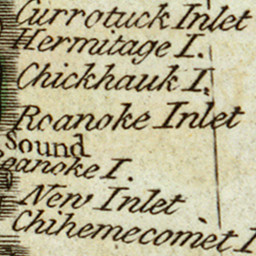 Currotuck Inlet
Hermitage I.
Chickhauk I.
Roanoke Inlet
Sound
Roanoke I.
New Inlet
Chihemecomet I